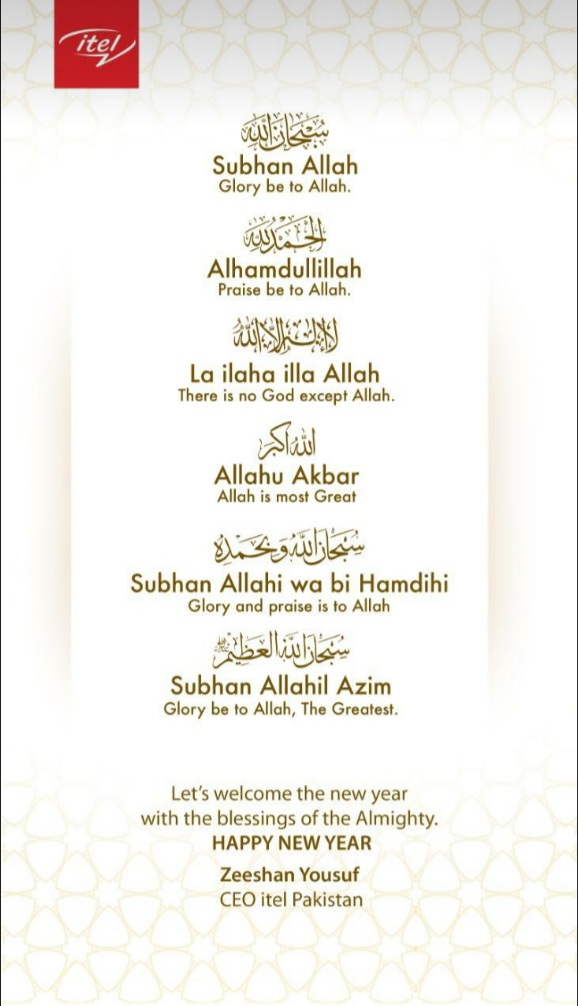 itel
سُبْحَانَ اللّٰه
Subhan Allah
Glory be to Allah.
الْحَمْدُ لِلّٰه
Alhamdullillah
Praise be to Allah.
لَا إِلٰهَ إِلَّا اللّٰه
La ilaha illa Allah
There is no God except Allah.
اللّٰه اكبر
Allahu Akbar
Allah is most Great
سُبْحَانَ اللّٰهِ وَبِحَمْدِهِ
Subhan Allahi wa bi Hamdihi
Glory and praise is to Allah
سُبْحَانَ اللّٰهِ الْعَظِيْمِ
Subhan Allahil Azim
Glory be to Allah, The Greatest.
Let’s welcome the new year
with the blessings of the Almighty.
HAPPY NEW YEAR
Zeeshan Yousuf
CEO itel Pakistan